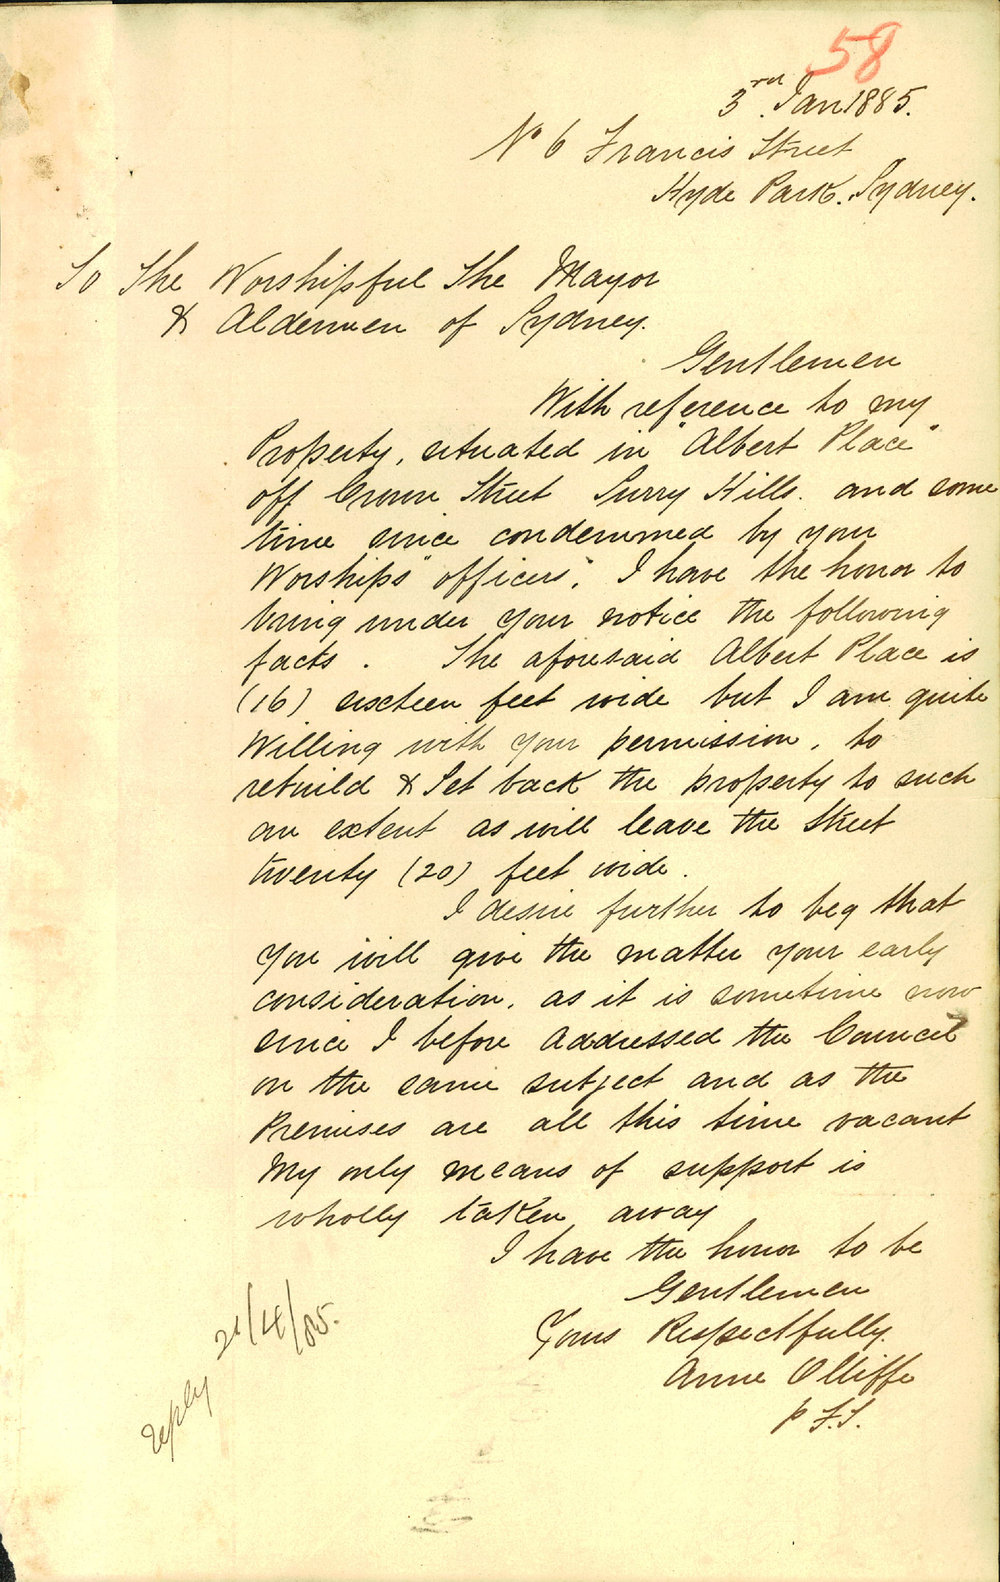 58
3rd. Jan 1885.
No 6 Francis Street
Hyde Park. Sydney.
To The Worshipful The Mayor
& Aldermen of Sydney.
Gentlemen
With reference to my
Property, situated in "Albert Place"
off Crown Street Surry Hills. and some
time since condemned by your
Worships "officers". I have the honor to
bring under your notice the following
facts. The aforesaid Albert Place is
(16) sixteen feet wide but I am quite
Willing with your permission, to
rebuild & Set back the property to such
an extent as will leave the Street
twenty (20) feet wide.
I desire further to beg that
you will give the matter your early
consideration, as it is sometime now
since I before addressed the Council
on the same subject and as the
Premises are all this time vacant
My only means of support is
wholly taken away
I have the honor to be
Gentlemen
Yours Respectfully.
Anne Olliffe
p F.S.
reply 21/4/85.